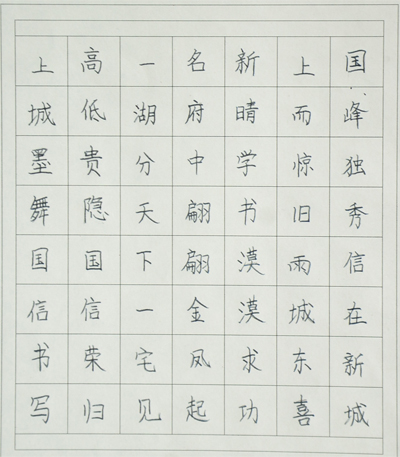 国峰独秀信在新城
上而惊旧雨城东喜
新晴学书漠漠求功
名府中翩翩金凤起
一湖分天下一宅见
高低贵隐国信荣归
上城墨舞国信书写